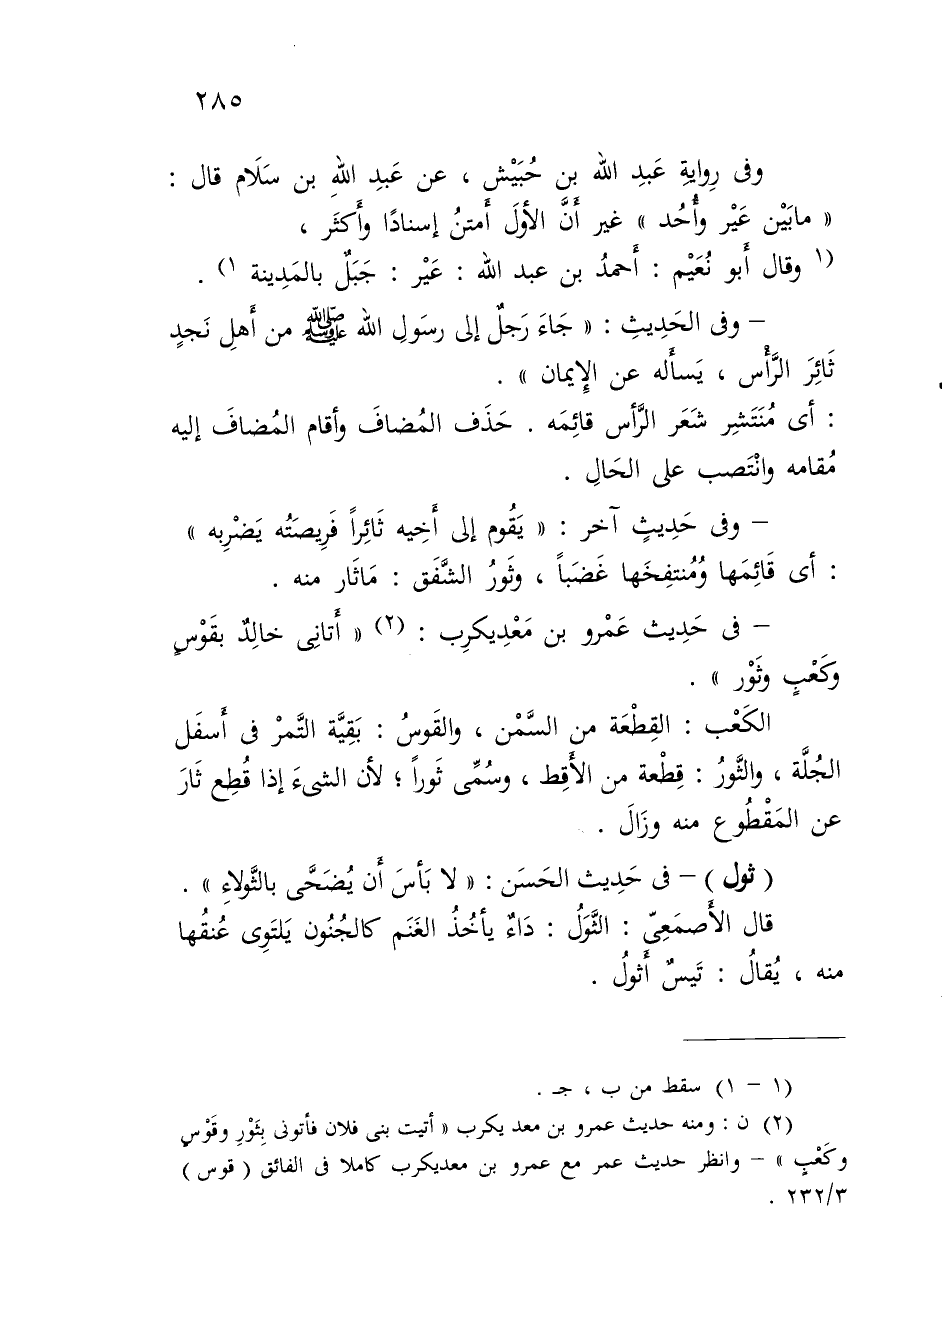 ٢٨٥
وفى رِوايةِ عَبدِ الله بن حُبَيْش ، عن عَبدِ اللهِ بن سَلَام قال :
« مابَيْن عَيْر وأُحُد » غير أَنَّ الأولَ أَمتنُ إسنادًا وأَكثَر ،
(١ وقال أَبو نُعَيْم : أَحمدُ بن عبد الله : عَيْر : جَبَلٌ بالمَدِينة ١) .
– وفى الحَدِيثِ : « جَاءَ رَجلٌ إلى رسَولِ الله ﷺ من أَهلِ نَجدٍ
ثَائِرَ الرَّأْس ، يَسأَله عن الإِيمان » .
: أى مُنَتَشِر شَعَر الرَّأس قائِمَه . حَذَف المُضافَ وأقام المُضافَ إليه
مُقامه وانْتَصب على الحَالِ .
– وفى حَدِيثٍ آخر : « يَقُوم إلى أَخِيه ثَائِراً فَرِيصَتُه يَضْرِبه »
: أى قَائِمَها ومُنتفِخَها غَضَباً ، وثَورُ الشَّفَق : مَاثَار منه .
– فى حَدِيث عَمْرو بن مَعْدِيكرِب : (٢) « أَتانِى خالِدٌ بقَوْسٍ
وكَعْبٍ وثَوْر » .
الكَعْب : القِطعَة من السَّمْن ، والقَوسُ : بَقِيَّة التَّمرْ فى أَسفَل
الجُلَّة ، والثَّورُ : قِطْعة من الأَقِط ، وسُمِّى ثَوراً ؛ لأن الشىءَ إذا قُطِع ثَارَ
عن المَقْطُوع منه وزَالَ .
( ثول ) – فى حَدِيث الحَسَن : « لا بَأسَ أَن يُضَحَّى بالثَّولاءِ » .
قال الأَصمَعِىّ : الثَّوَلُ : دَاءٌ يأخُذُ الغَنَم كالجُنُون يَلتَوِى عُنقُها
منه ، يُقالُ : تَيسٌ أَثولُ .
(١ – ١) سقط من ب ، جـ .
(٢) ن : ومنه حديث عمرو بن معد يكرب « أتيت بنى فلان فأتونى بِثَوْرِ وقَوْسٍ
وكَعْبٍ » – وانظر حديث عمر مع عمرو بن معديكرب كاملا فى الفائق ( قوس )
٢٣٢/٣ .